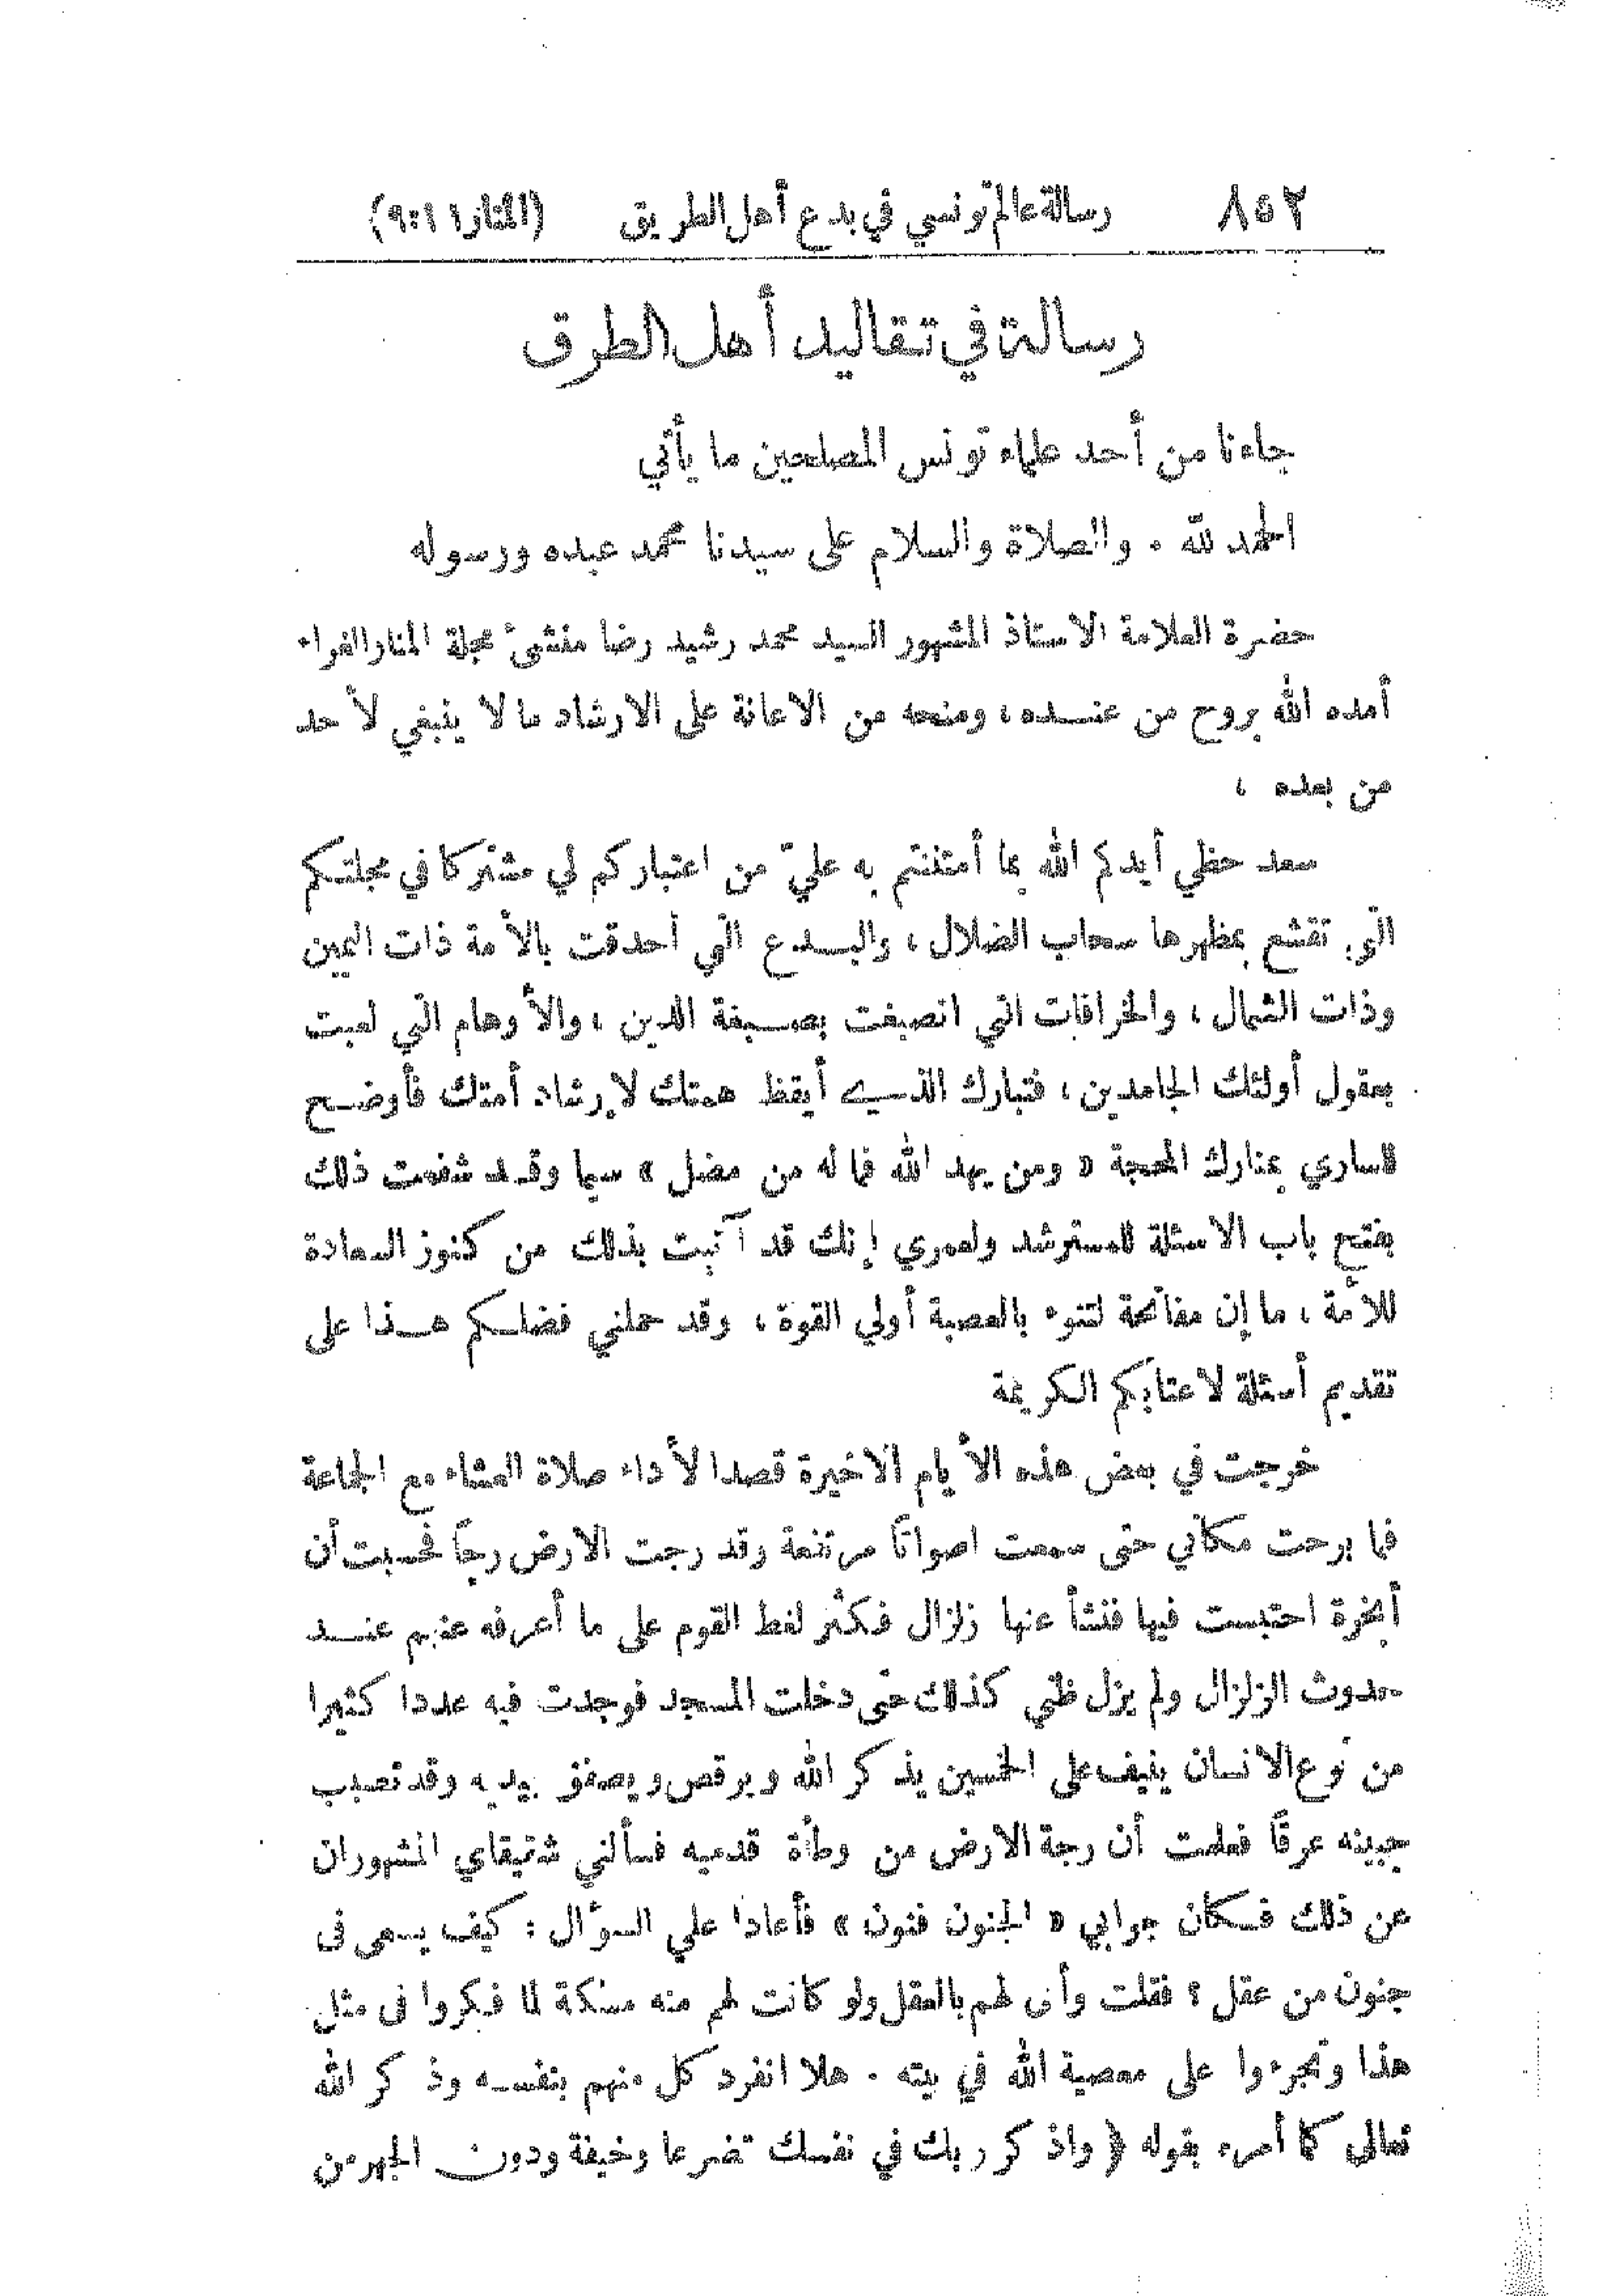 ٨٥٢ رسالة عالم تونسي في بدع أهل الطريق (المنار ١١ : ٩)
رسالة في تقاليد أهل الطرق
جاءنا من أحد علماء تونس المصلحين ما يأتي
الحمد لله . والصلاة والسلام على سيدنا محمد عبده ورسوله
حضرة العلامة الاستاذ المشهور السيد محمد رشيد رضا منشئ مجلة المنار الغراء
أمده الله بروح من عنده ، ومنحه من الاعانة على الارشاد ما لا ينبغي لأحد
من بعده ،
سعد حظي أيدكم الله بما أمتننتم به عليّ من اعتباركم لي مشتركا في مجلتكم
التي تقشع بمظهرها سحاب الضلال ، والبدع التي أحدقت بالأمة ذات اليمين
وذات الشمال ، والخرافات التي انصبغت بصبغة الدين ، والأوهام التي لعبت
بعقول أولئك الجامدين ، فتبارك الذي أيقظ همتك لإرشاد أمتك فأوضح
للساري بمنارك المحجة « ومن يهد الله فما له من مضل » سيما وقد شفعت ذلك
بفتح باب الاسئلة للمسترشد ولعمري إنك قد آتيت بذلك من كنوز السعادة
للأمة ، ما إن مفاتحة لتنوء بالعصبة أولي القوة ، وقد حملني فضلكم هذا على
تقديم أسئلة لاعتابكم الكريمة
خرجت في بعض هذه الأيام الاخيرة قصدا لأداء صلاة العشاء مع الجماعة
فما برحت مكاني حتى سمعت اصواتاً مرتفعة وقد رجت الارض رجاً فحسبت أن
أبخرة احتبست فيها فنشأ عنها زلزال فكثر لغط القوم على ما أعرفه عنهم عند
حدوث الزلزال ولم يزل ظني كذلك حتى دخلت المسجد فوجدت فيه عددا كثيرا
من نوع الانسان ينيف على الخمسين يذكر الله ويرقص ويصفق بيديه وقد تصبب
جبينه عرقاً فعلمت أن رجة الارض من وطأة قدميه فسألني شقيقاي المشهوران
عن ذلك فكان جوابي « الجنون فنون » فأعادا علي السؤال : كيف يسعى فى
جنون من عقل ؟ فقلت وأنى لهم بالعقل ولو كانت لهم منه مسكة لما فكروا فى مثل
هذا وتجرءوا على معصية الله في بيته . هلا انفرد كل منهم بنفسه وذكر الله
تعالى كما أمره بقوله ( واذكر ربك في نفسك تضرعا وخيفة ودون الجهر من